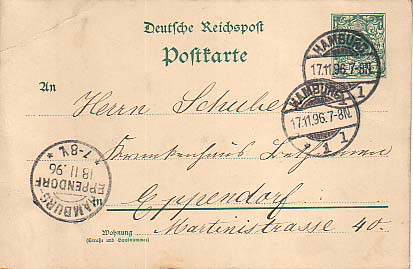 Deutsche Reichspost
Postkarte
HAMBURG
17.11.96.7-8N.
1 1
An
Herrn Schube
HAMBURG
17.11.96.7-8N.
* 1 1
Krankenhaus Bethanien
Eppendorf
HAMBURG-
EPPENDORF
18 11.96
* 7-8V. *
Martinistrasse 40.
Wohnung
(Straße und Hausnummer)